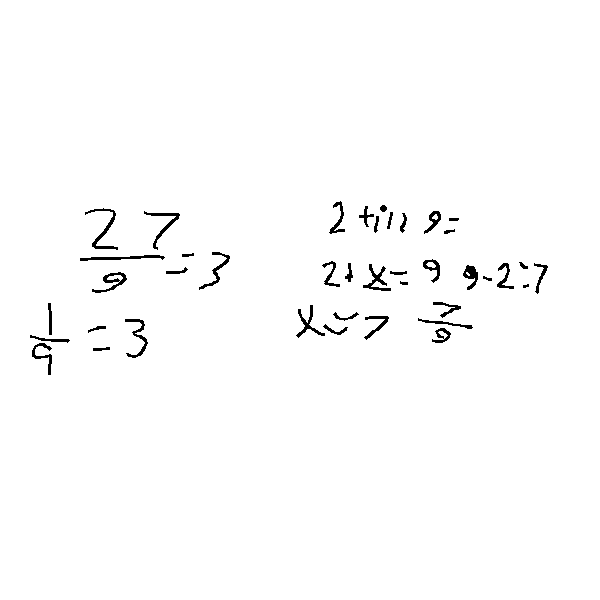 27/9 = 3
1/9 = 3
2 till 9 =
2 + x = 9 9 - 2 = 7
x = 7 7/9